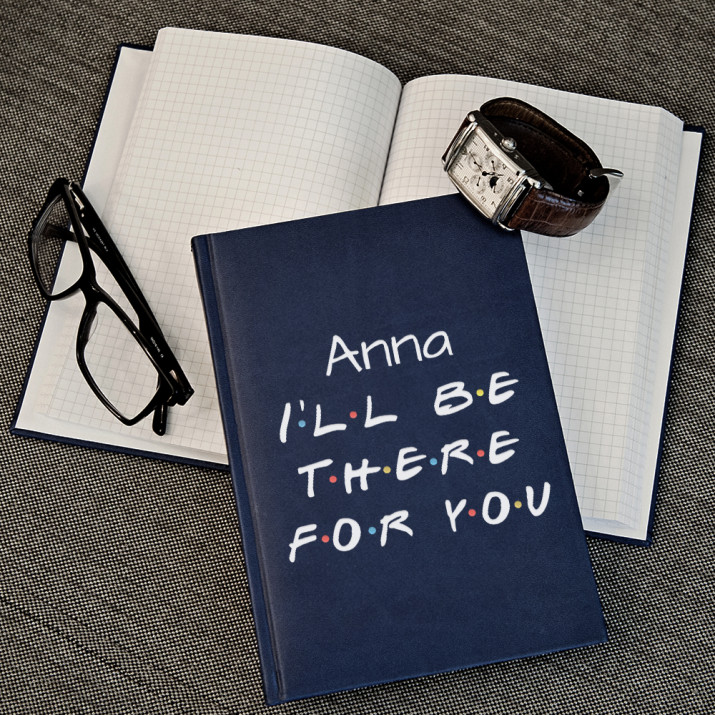 Anna
I'L·L B·E
T·H·E·R·E
F·O·R Y·O·U